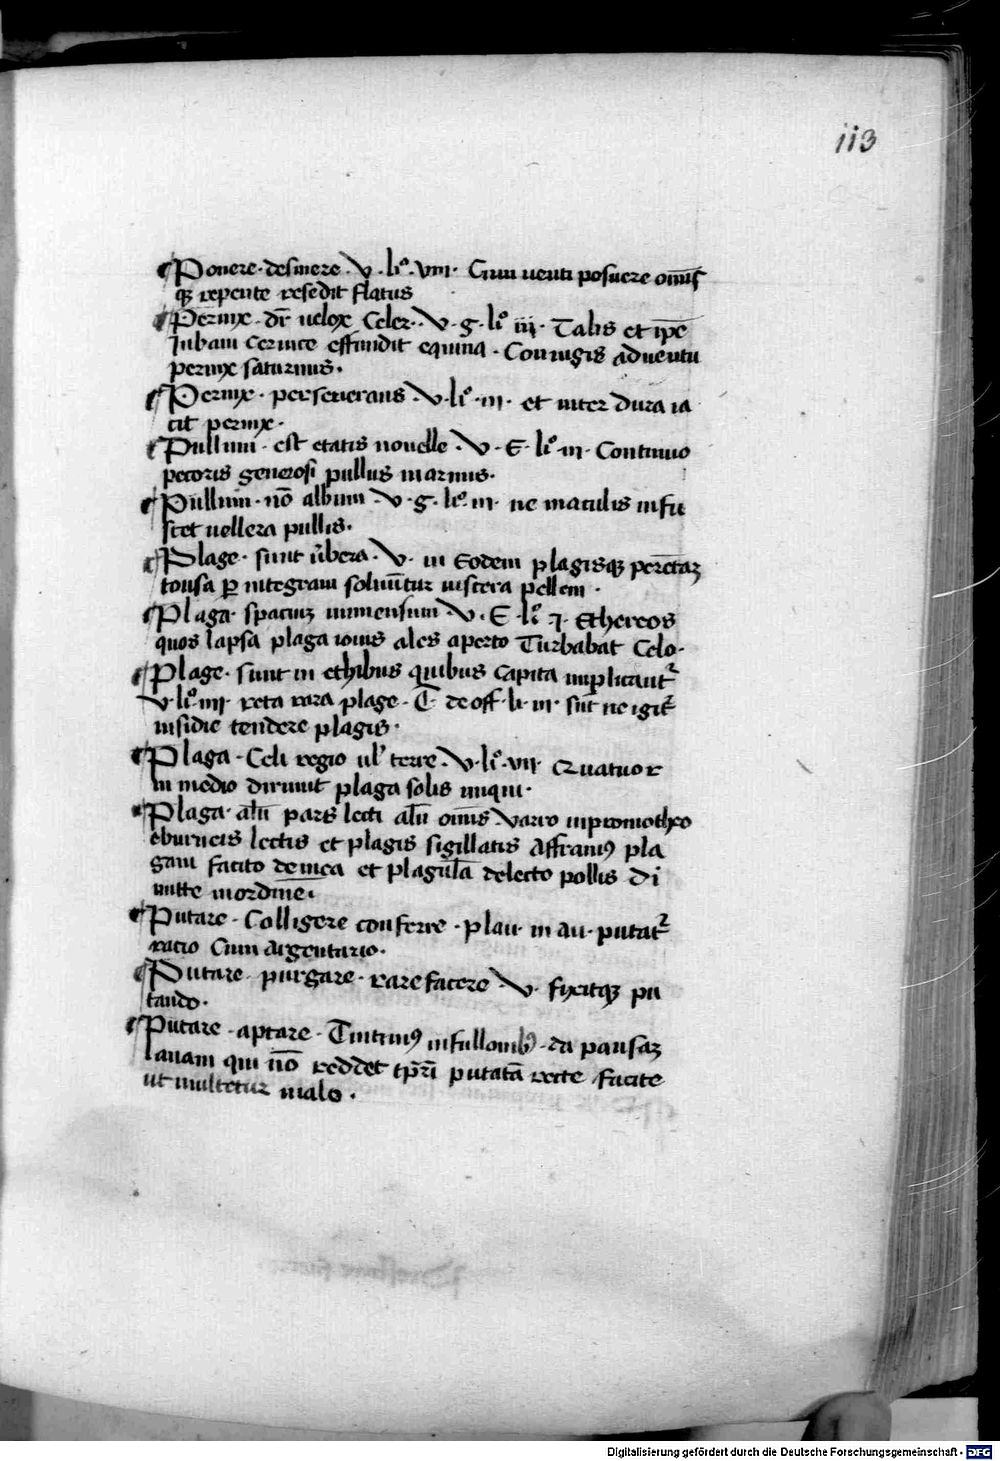 113
Ponere · desinere · V · liº · viii · Cum uenti posuere om̄is
qꝫ repente resedit flatus
Pernix · dr̄ uelox Celer · V · g · liº iii · Talis et ip̄e
Iubam ceruice effundit equina · Coniugis aduentu
pernix saturnus ·
Pernix · perseuerans V · liº · iii · et inter dura ia
cit pernix ·
Pullum · est etatis nouelle · V · E · liº · iii · Continuo
pecoris generosi pullus in aruis ·
Pullum · nō album V · g · liº · iii · ne maculis infu
scet uellera pullis ·
Plage · sunt ubera · V · in Eodem plagisqꝫ
tonsa ꝑ integram soluūtur uiscera pellem ·
Plaga · spacium inmensum V · E · liº · Ethereos
quos lapsa plaga iouis ales aperto Turbabat Celo ·
Plage · sunt in ethibus quibus capita implicantr̄
V · liº · iiii · reta rara plage · T · de off · li · iii · sūt ne igit̄
insidie tendere plagis ·
Plaga · Celi regio ul' terre · V · liº · vii · Quatuor
in medio dirimit plaga solis iniqui ·
Plaga · aliū pars lecti aliū om̄is Varro in promotheo
eburneis lectis et plagis sigillatis Affranius pla
gam facito de mea et plagula delecto pollis Di
mitte in ordine ·
Putare · Colligere conferre · plau · in au · putatr̄
ratio Cum argentario ·
Putare · purgare · rare facere V · fixitqꝫ pu
tando ·
Putare · aptare · Titinius in fullonibꝰ · da pansaꝫ
lanam qui nō reddet tp̄ri putatā recte facite
ut multetur malo ·
Digitalisierung gefördert durch die Deutsche Forschungsgemeinschaft - DFG